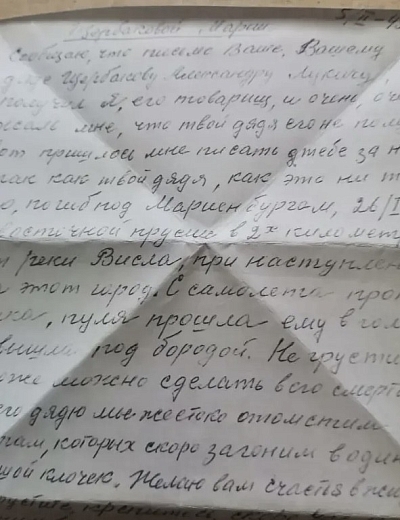 Щербаковой Марии
5/II-45
Сообщаю, что письмо Ваше, Вашему
дяде Щербакову Александру Лукичу,
получил я, его товарищ, и очень, оче
жаль мне, что твой дядя его не полу
вот пришлось мне писать тебе за н
так как твой дядя, как это ни т
о, погиб под Мариенбургом, 26/I
восточной пруссии в 2х километ
от реки Висла, при наступлен
а этот город. С самолета про
ика, пуля прошла ему в гол
вышла под бородой. Не грусти
оже можно сделать в его смерт
его дядю мы жестоко отомстим
гам, которых скоро загоним в один
шой клочек. Желаю вам счастя в жи